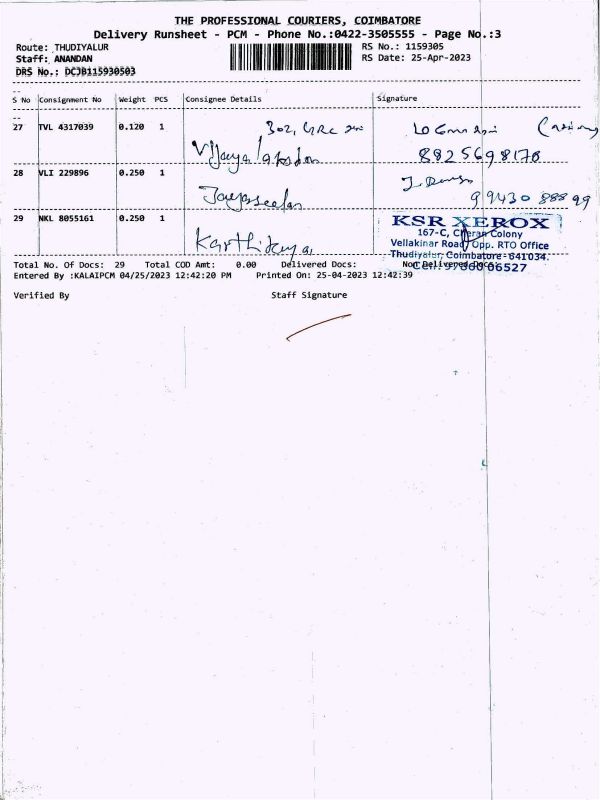 THE PROFESSIONAL COURIERS, COIMBATORE
Delivery Runsheet - PCM - Phone No.:0422-3505555 - Page No.:3
Route: THUDIYALUR
RS No.: 1159305
Staff: ANANDAN
RS Date: 25-Apr-2023
DRS No.: DCJB115930503
S No Consignment No Weight PCS Consignee Details Signature
27 TVL 4317039 0.120 1 302,
8825698178
28 VLI 229896 0.250 1
99430 88899
29 NKL 8055161 0.250 1 Karthikeya
KSR XEROX
167-C, Cheran Colony
Vellakinar Road, Opp. RTO Office
Thudiyalur, Coimbatore-641034.
Total No. Of Docs: 29 Total COD Amt: 0.00 Delivered Docs: Non Delivered Docs:
Entered By :KALAIPCM 04/25/2023 12:42:20 PM Printed On: 25-04-2023 12:42:39
Verified By Staff Signature